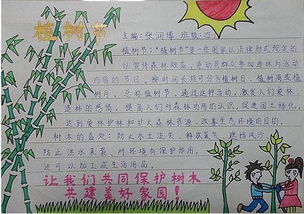 植树节
主编：张润博 班级：四
植树节："植树节"是一些国家以法律形式规定的
以宣传森林效益，并动员群众参加造林为活动
内容的节日。按时间长短可分为植树日、植树周或植
树月，总称植树节。通过这种活动，激发人们爱林、
造林的感情，提高人们对森林功用的认识，促进国土绿化，
达到爱林护林和扩大森林资源、改善生态环境的目的。
树木的益处：防止水土流失 释放氧气 遮挡风沙
防止洪水来袭 对环境有保护作用，
还可以加工成生活用品。
让我们共同保护树木
共建美好家园！